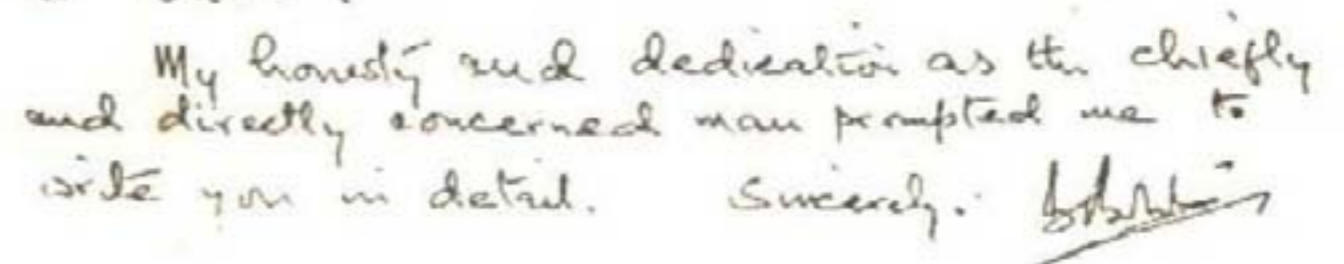 My honesty and dedication as the chiefly
and directly concerned man prompted me to
write you in detail. Sincerely.